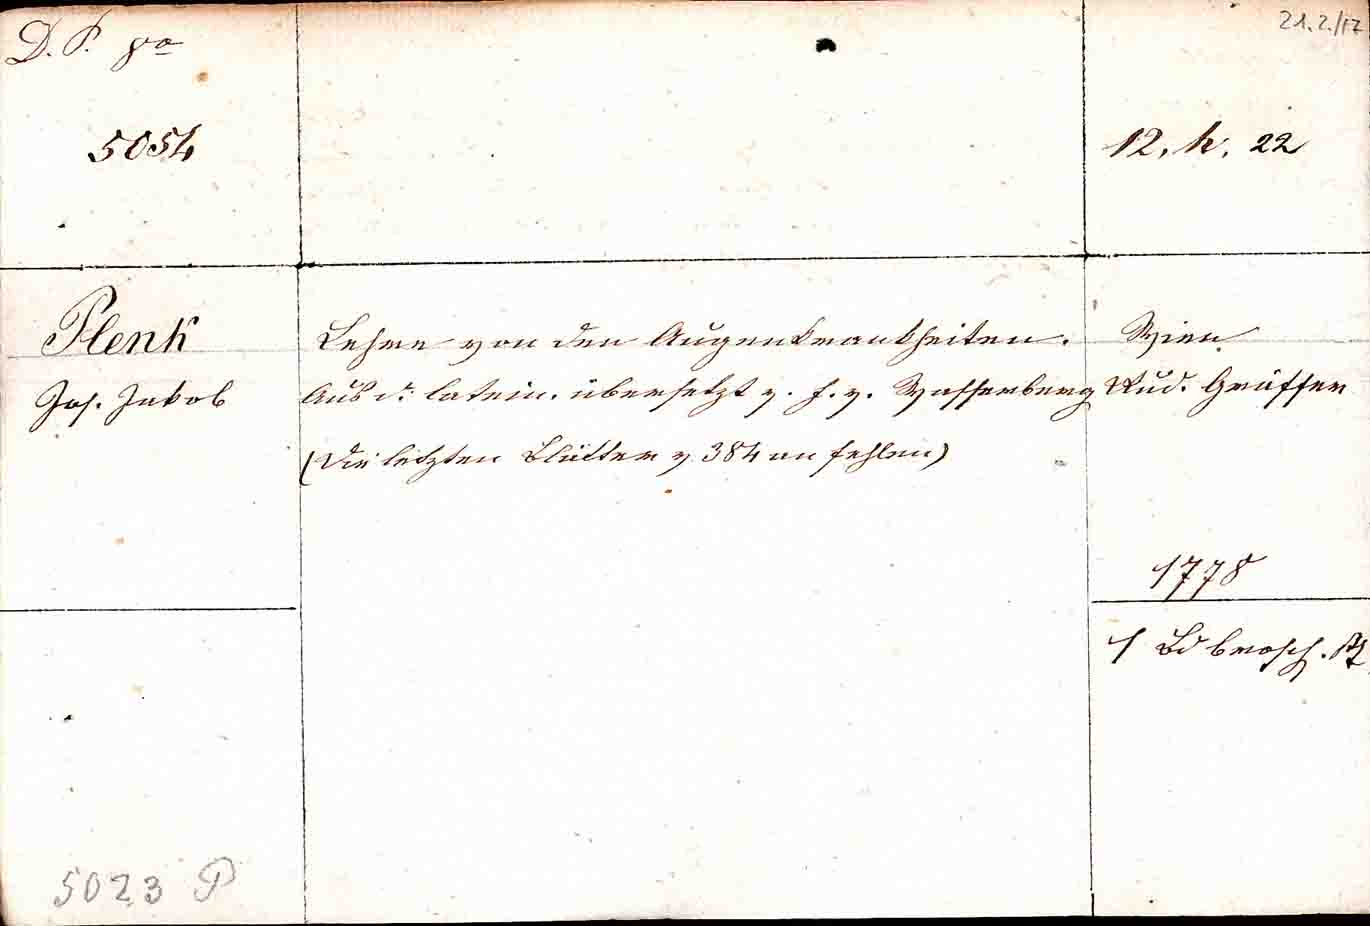 D. P. 8o
21.2./17
5054
12. h. 22
Plenk
Jos. Jakob
Lehre von den Augenkrankheiten.
Aus d. latein. übersetzt v. F. v. Wasserberg
(Die letzten Blätter v 384 an fehlen)
Wien
Rud. Gräffer
1778
1 Bd brosch.
5023 P